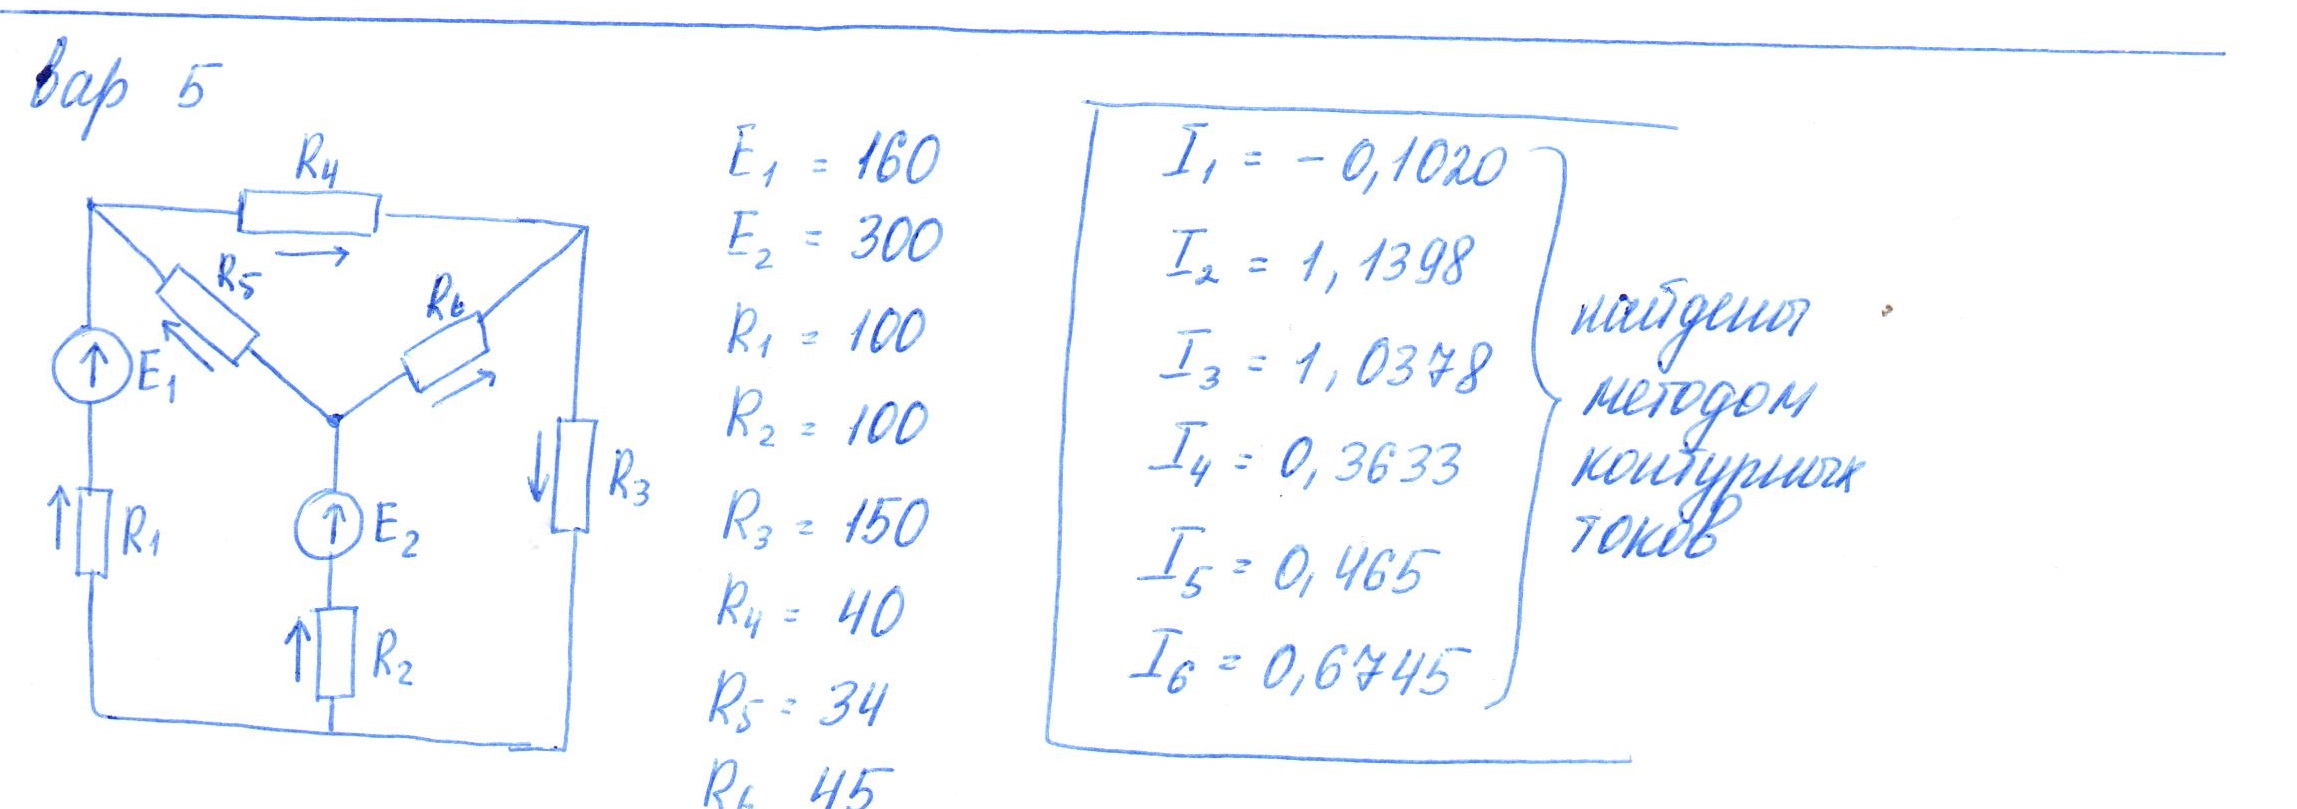 вар 5
R4
R5
R6
E1
E2
R3
R1
R2
E1 = 160
E2 = 300
R1 = 100
R2 = 100
R3 = 150
R4 = 40
R5 = 34
R6 45
I1 = - 0,1020
I2 = 1,1398
I3 = 1,0378
I4 = 0,3633
I5 = 0,465
I6 = 0,6745
найдены
методом
контурных
токов